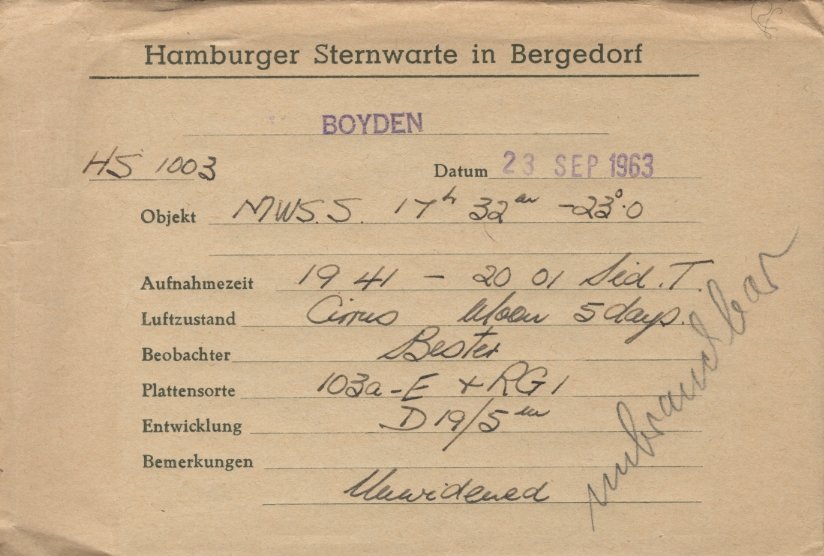 Hamburger Sternwarte in Bergedorf
BOYDEN
HS 1003 Datum 23 SEP 1963
Objekt MWS.S. 17ʰ 32ᵐ -23°.0
Aufnahmezeit 19 41 - 20 01 Sid. T.
Luftzustand Cirrus Moon 5 days.
Beobachter Bester
Plattensorte 103a-E + RG1
Entwicklung D19/5ᵐ
Bemerkungen
Unwidened
unbrauchbar